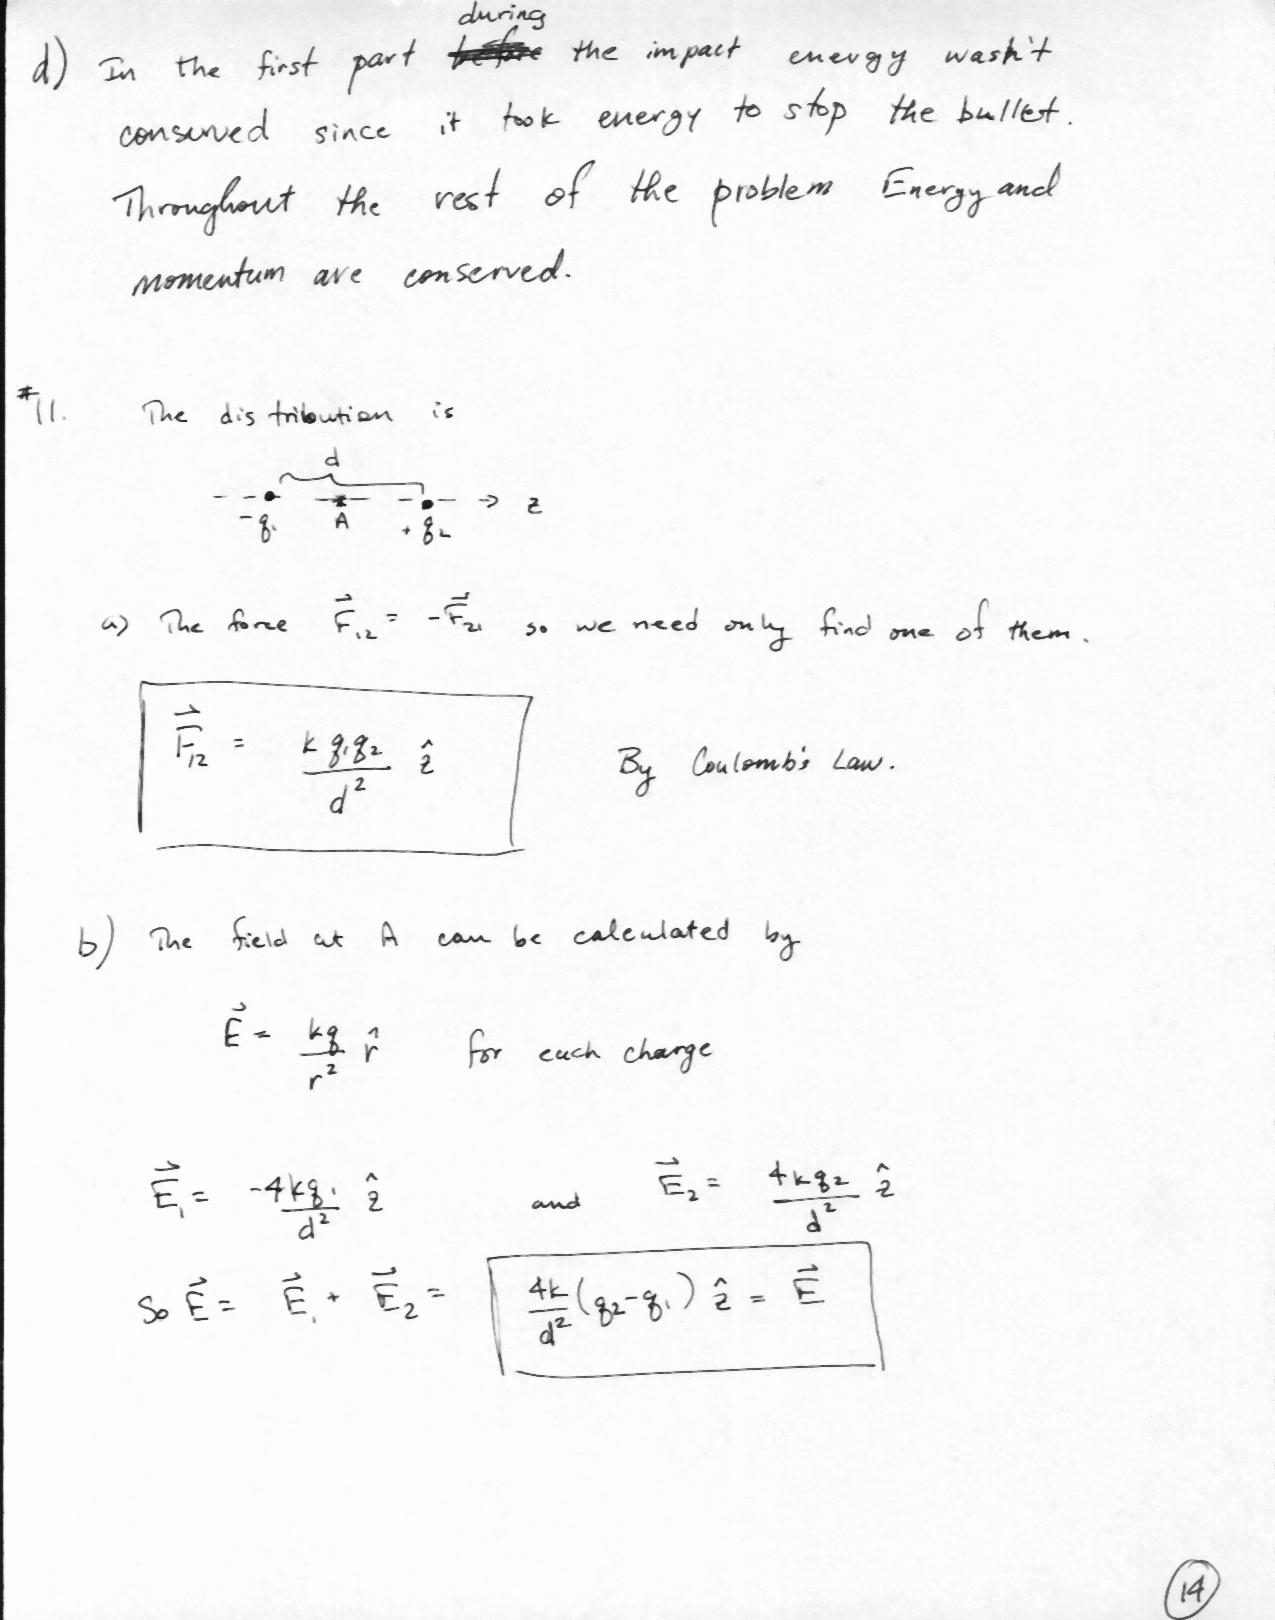 during
d) In the first part the impact energy wasn't
conserved since it took energy to stop the bullet.
Throughout the rest of the problem Energy and
momentum are conserved.
#11. The distribution is
d
-q₁ A +q₂ → z
a) The force F⃗₁₂ = -F⃗₂₁ so we need only find one of them.
F⃗₁₂ = k q₁q₂ / d² ẑ By Coulomb's Law.
b) The field at A can be calculated by
E⃗ = kq / r² r̂ for each charge
E⃗₁ = -4kq₁ / d² ẑ and E⃗₂ = 4kq₂ / d² ẑ
So E⃗ = E⃗₁ + E⃗₂ = 4k / d² (q₂-q₁) ẑ = E⃗
14